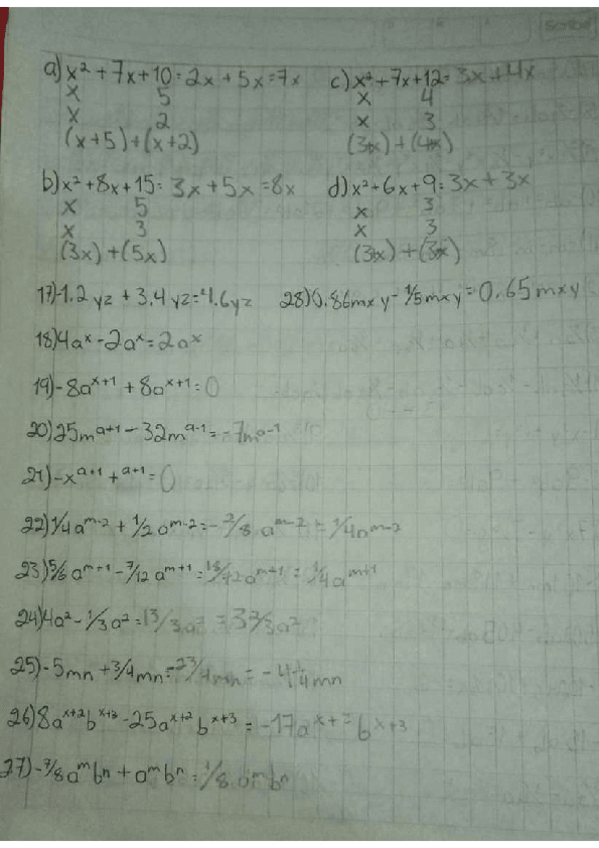 a) x² + 7x + 10 = 2x + 5x = 7x
x 5
x 2
(x+5) + (x+2)
c) x² + 7x + 12 = 3x + 4x
x 4
x 3
(3x) + (4x)
b) x² + 8x + 15 = 3x + 5x = 8x
x 5
x 3
(3x) + (5x)
d) x² + 6x + 9 = 3x + 3x
x 3
x 3
(3x) + (3x)
17) -1.2 yz + 3.4 yz = 4.6 yz
28) 0.86 mxy - 1/5 mxy = 0.65 mxy
18) 4aˣ - 2aˣ = 2aˣ
19) -8aˣ⁺¹ + 8aˣ⁺¹ = 0
20) 25mᵃ⁺¹ - 32mᵃ⁻¹ = -7mᵃ⁻¹
21) -xᵃ⁺¹ + ᵃ⁺¹ = 0
22) 1/4 aᵐ⁻² + 1/2 aᵐ⁻² = - 2/8 aᵐ⁻² = 1/4 aᵐ⁻³
23) 5/6 aᵐ⁺¹ - 7/12 aᵐ⁺¹ = aᵐ⁺¹ = 1/4 aᵐ⁺¹
24) 4a² - 1/3 a² = 13/3 a² = 3 2/3 a²
25) -5mn + 3/4 mn = 23/4 mn = - 4 1/4 mn
26) 8aˣ⁺²bˣ⁺³ - 25aˣ⁺²bˣ⁺³ = -17aˣ⁺²bˣ⁺³
27) -7/8 aᵐbⁿ + aᵐbⁿ = 1/8 aᵐbⁿ